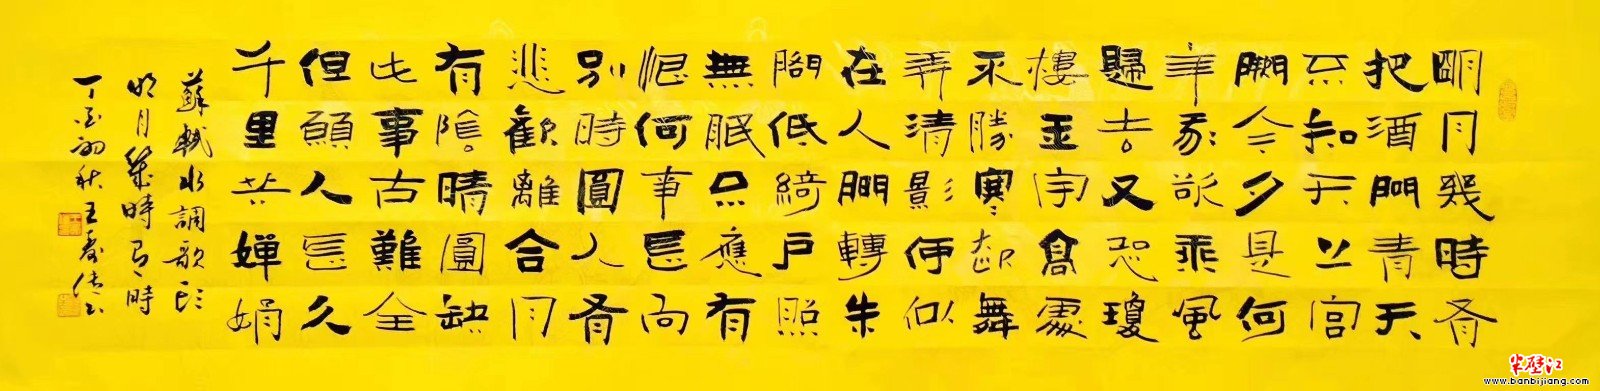 明月幾時有
把酒問青天
不知天上宮
闕今夕是何
年我欲乘風
歸去又恐瓊
樓玉宇高處
不勝寒起舞
弄清影何似
在人間轉朱
閣低綺戶照
無眠不應有
恨何事長向
別時圓人有
悲歡離合月
有陰晴圓缺
此事古難全
但願人長久
千里共嬋娟
蘇軾水調歌頭
明月幾時有時
丁酉初秋王
半壁江
www.banbijiang.com